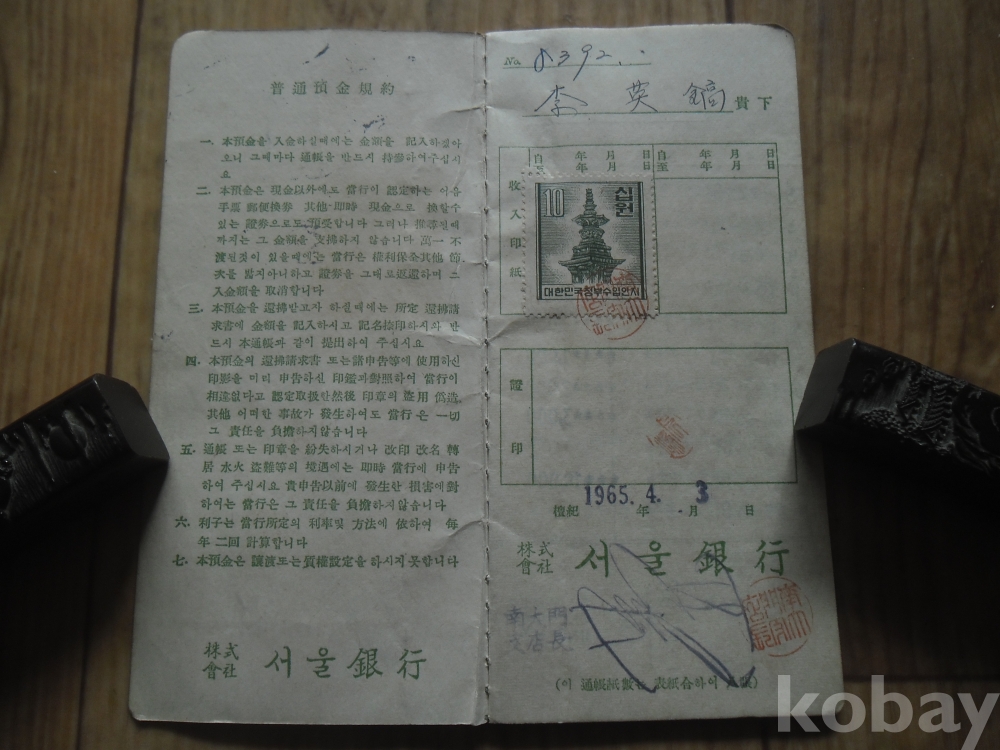 普通預金規約
一. 本預金을 入金하실때에는 金額을 記入하실아
오니 그때마다 通帳을 반드시 持參하여주십시
요
二. 本預金은 現金以外에도 當行이 認定하는 어음
手票 郵便換券 其他 即時 現金으로 換할수
있는 證券으로도 預受합니다 그러나 推尋될때
까지는 그 金額을 支拂하지 않습니다 萬一 不
渡된것이 있을때에는 當行은 權利保全其他 節
次를 밟지아니하고 證券을 그대로返還하며 그
入金額을 取消합니다
三. 本預金을 還拂받고자 하실때에는 所定 還拂請
求書에 金額을 記入하시고 記名捺印하시와 반
드시 本通帳과 같이 提出하여 주십시요
四. 本預金의 還拂請求書 또는 諸申告等에 使用하신
印影을 미리 申告하신 印鑑과對照하여 當行이
相違없다고 認定取扱한然後 印章의 盜用 僞造
其他 어떠한 事故가 發生하여도 當行은 一切
그 責任을 負擔하지않습니다
五. 通帳 또는 印章을 紛失하시거나 改印 改名 轉
居 水火 盜難等의 境遇에는 即時 當行에 申告
하여 주십시요 貴申告以前에 發生한 損害에對
하여는 當行은 그 責任을 負擔하지않습니다
六. 利子는 當行所定의 利率및 方法에 依하여 每
年 二回 計算합니다
七. 本預金은 讓渡또는質權設定을 하시지못합니다
株式會社 서울銀行
No. 8392
李 英 鎬 貴下
自 年 月 日 自 年 月 日
至 年 月 日 至 年 月 日
收入印紙
10 십원
대한민국정부수입인지
證印
1965. 4. 3
檀紀 年 月 日
株式會社 서울銀行
南大門
支店長
(이 通帳紙數는 表紙合하여
kobay